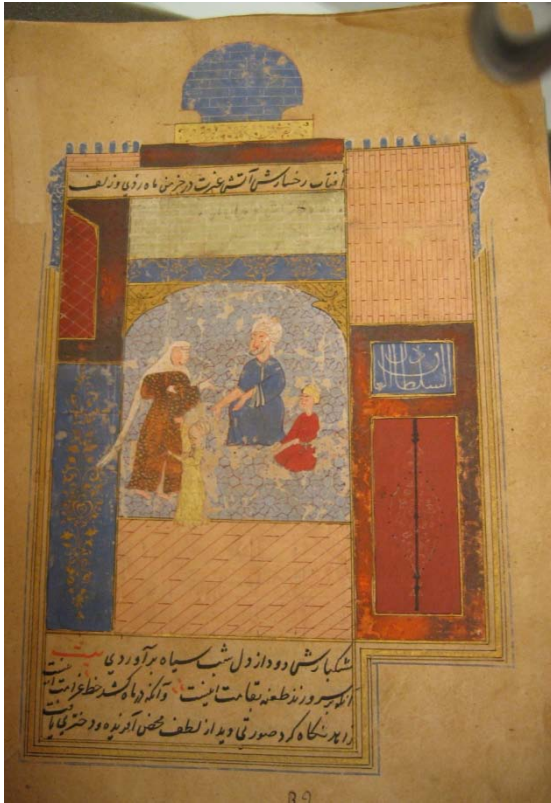 آفتاب رخسارش آتش غیرت در خرمن ماه زدی و زلف
السلطان العادل
مشکبارش دود از دل شب سیاه برآوردی بیت
آنکه بر سرو زند طعنه بقامت اینست وآنکه در ماه کشد خط غرامت اینست
زاهد نگاه کرد صورتی دید از لطف محض آفریده و دختری یافت